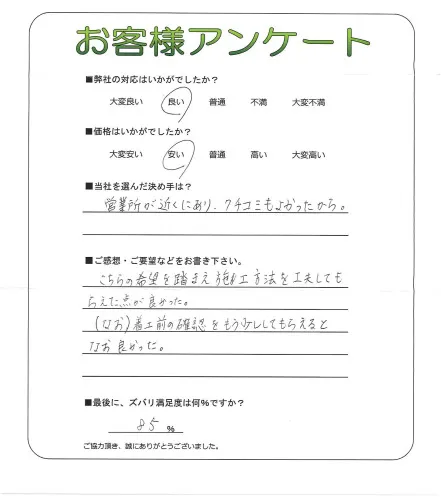 お客様アンケート
■弊社の対応はいかがでしたか?
大変良い 良い 普通 不満 大変不満
■価格はいかがでしたか?
大変安い 安い 普通 高い 大変高い
■当社を選んだ決め手は?
営業所が近くにあり、クチコミもよかったから。
■ご感想・ご要望などをお書き下さい。
こちらの希望を踏まえ施工方法を工夫しても
らえた点が良かった。
(なお)着工前の確認をもう少ししてもらえると
なお良かった。
■最後に、ズバリ満足度は何%ですか?
85 %
ご協力頂き、誠にありがとうございました。